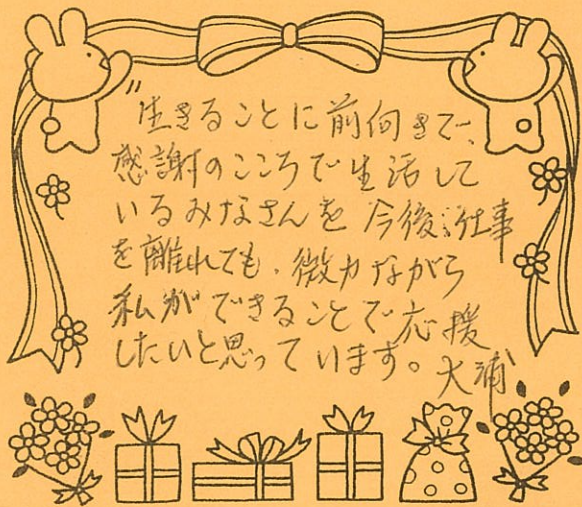 生きることに前向きで、
感謝のこころで生活して
いるみなさんを今後、仕事
を離れても、微力ながら
私ができることで応援
したいと思っています。大浦